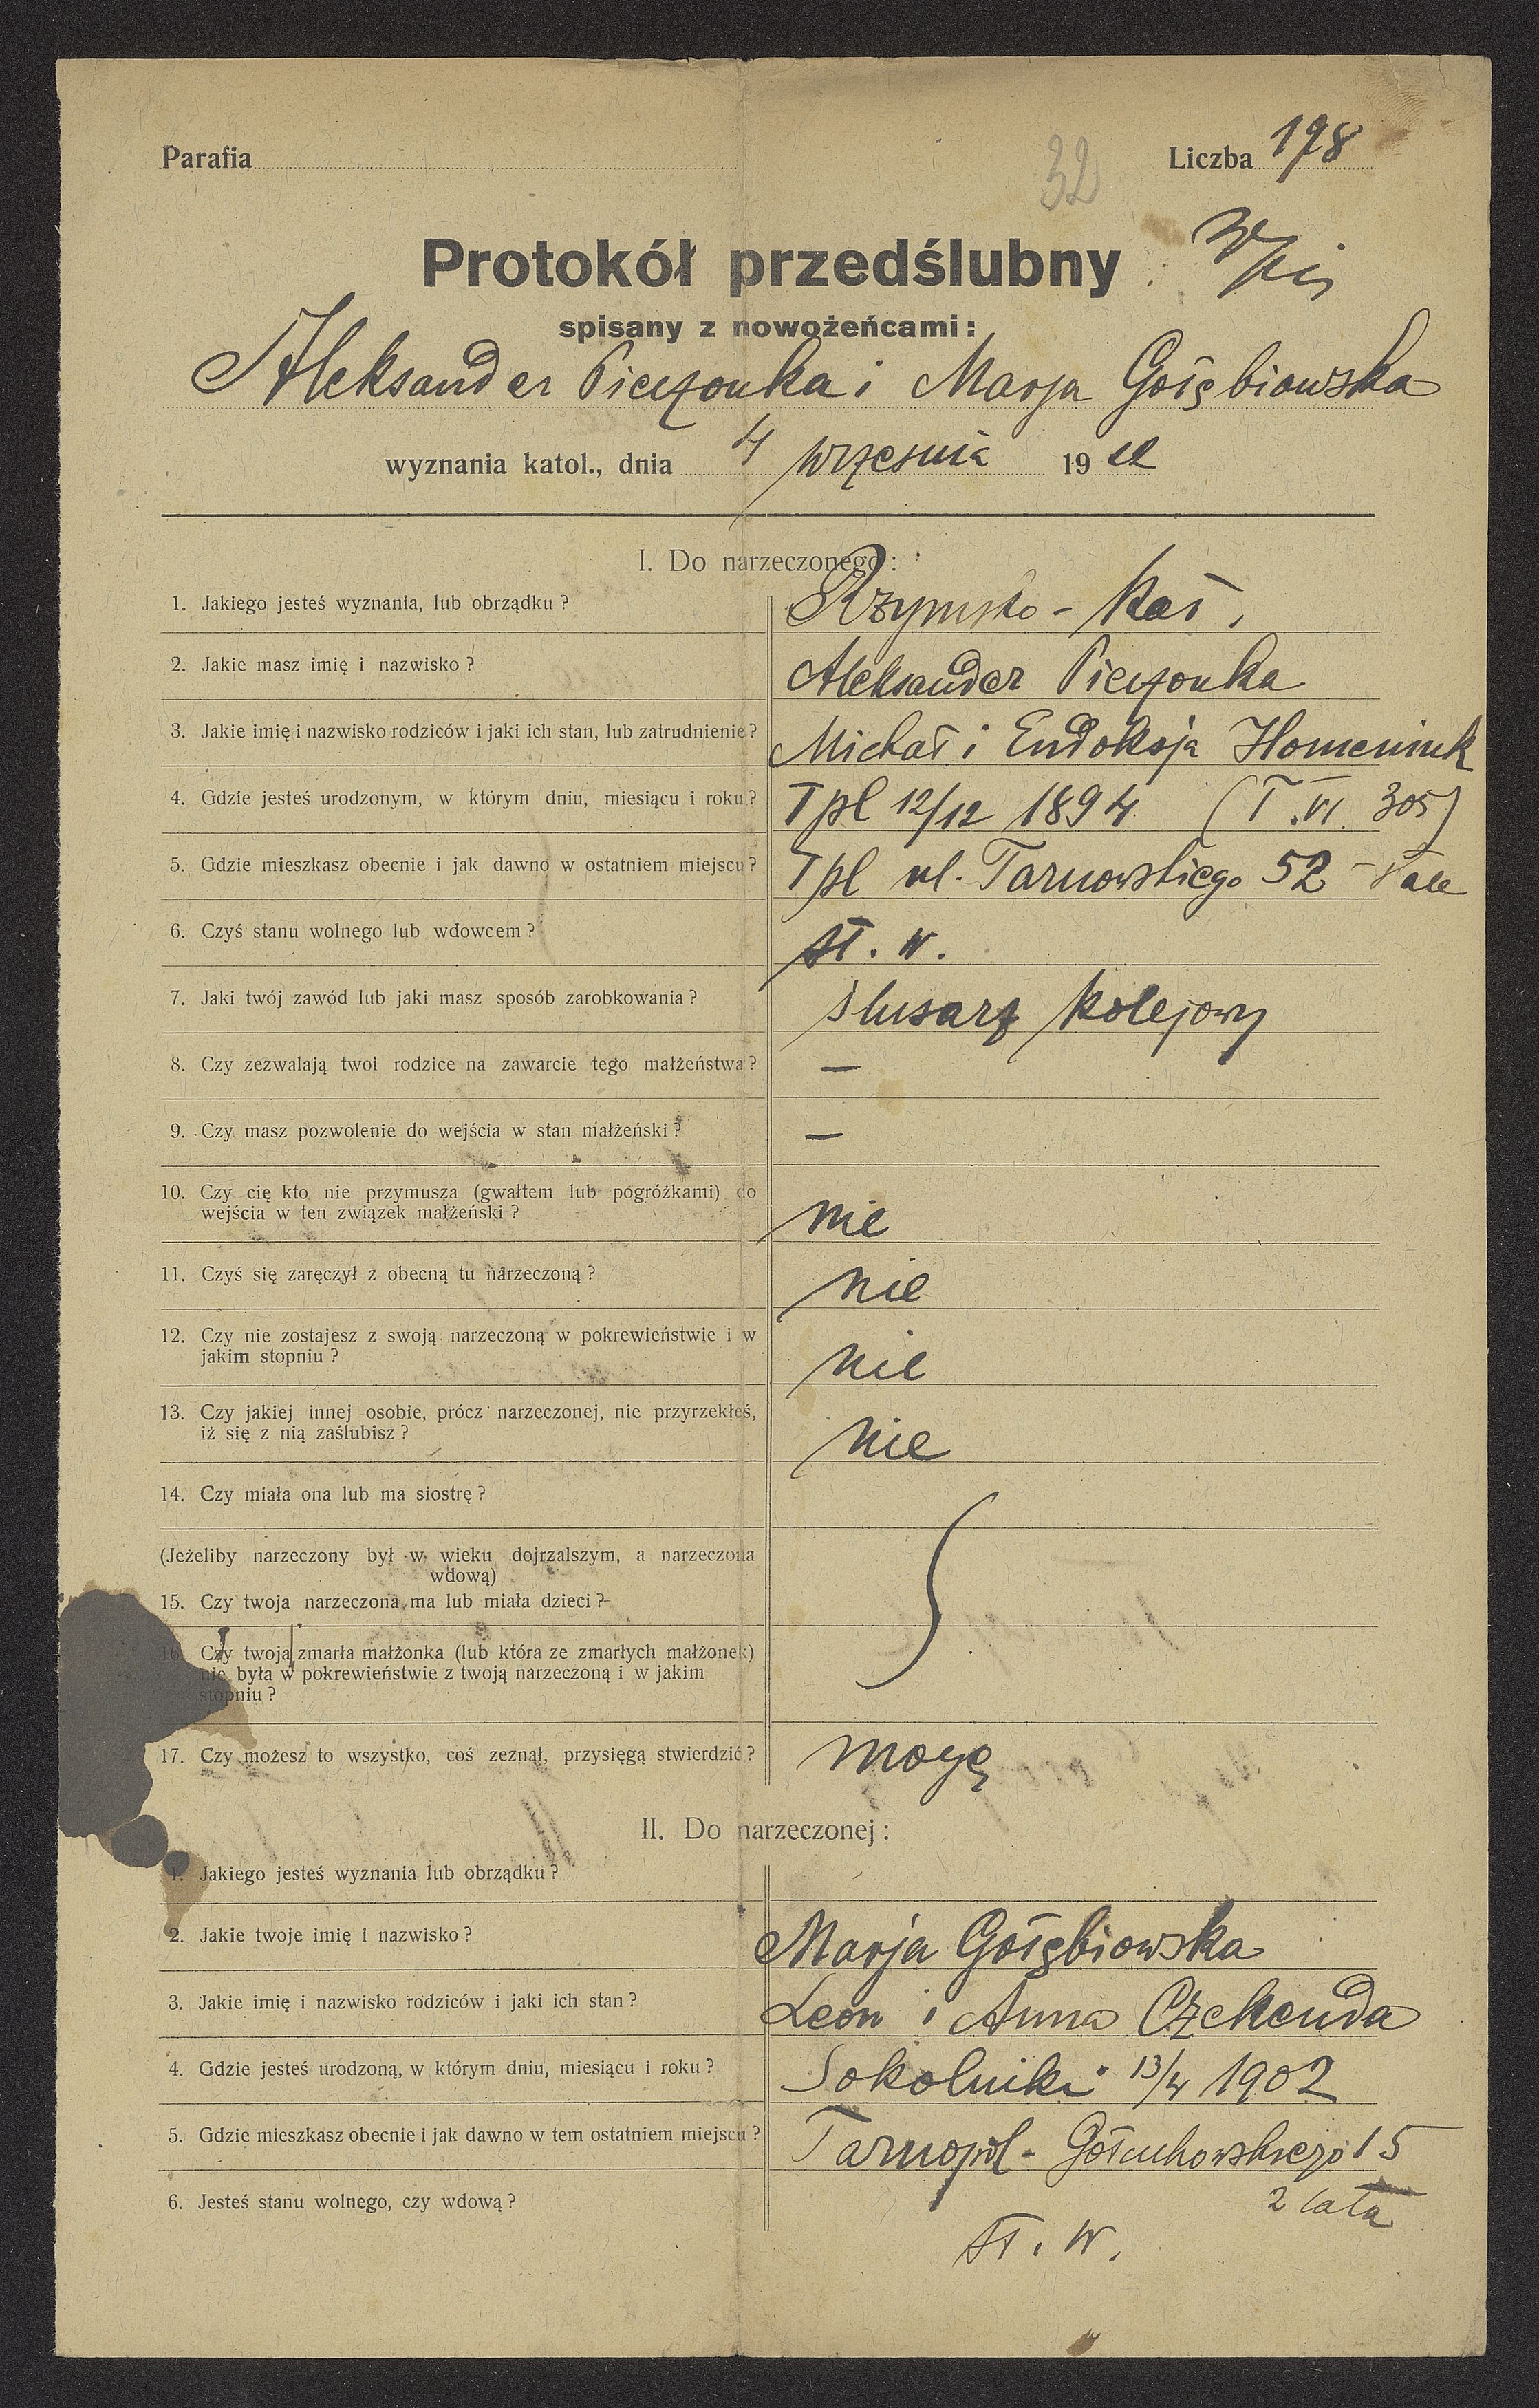 Parafia
32
Liczba 178
Protokół przedślubny
spisany z nowożeńcami:
Aleksander Pieczonka i Marja Gołębiowska
wyznania katol., dnia 4 września 19 22
I. Do narzeczonego:
1. Jakiego jesteś wyznania, lub obrządku? Rzymsko-kat.
2. Jakie masz imię i nazwisko? Aleksander Pieczonka
3. Jakie imię i nazwisko rodziców i jaki ich stan, lub zatrudnienie? Michał i Eudoksja Homeniuk
4. Gdzie jesteś urodzonym, w którym dniu, miesiącu i roku? Tpl 12/12 1894 (T. VI. 305)
5. Gdzie mieszkasz obecnie i jak dawno w ostatniem miejscu? Tpl ul. Tarnowskiego 52 -
6. Czyś stanu wolnego lub wdowcem? st. w.
7. Jaki twój zawód lub jaki masz sposób zarobkowania? ślusarz kolejowy
8. Czy zezwalają twoi rodzice na zawarcie tego małżeństwa? —
9. Czy masz pozwolenie do wejścia w stan małżeński? —
10. Czy cię kto nie przymusza (gwałtem lub pogróżkami) do
wejścia w ten związek małżeński? nie
11. Czyś się zaręczył z obecną tu narzeczoną? nie
12. Czy nie zostajesz z swoją narzeczoną w pokrewieństwie i w
jakim stopniu? nie
13. Czy jakiej innej osobie, prócz narzeczonej, nie przyrzekłeś,
iż się z nią zaślubisz? nie
14. Czy miała ona lub ma siostrę?
(Jeżeliby narzeczony był w wieku dojrzalszym, a narzeczona
wdową)
15. Czy twoja narzeczona ma lub miała dzieci?
16. Czy twoja zmarła małżonka (lub która ze zmarłych małżonek)
nie była w pokrewieństwie z twoją narzeczoną i w jakim
stopniu?
17. Czy możesz to wszystko, coś zeznał, przysięgą stwierdzić? mogę
II. Do narzeczonej:
1. Jakiego jesteś wyznania lub obrządku?
2. Jakie twoje imię i nazwisko? Marja Gołębiowska
3. Jakie imię i nazwisko rodziców i jaki ich stan? Leon i Anna Czekenda
4. Gdzie jesteś urodzoną, w którym dniu, miesiącu i roku? Sokolniki 13/4 1902
5. Gdzie mieszkasz obecnie i jak dawno w tem ostatniem miejscu? Tarnopol - Gołuchowskiego 15
2 lata
6. Jesteś stanu wolnego, czy wdową? st. w.